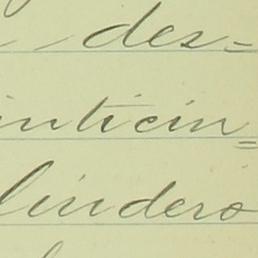 des=
inticin=
lindero